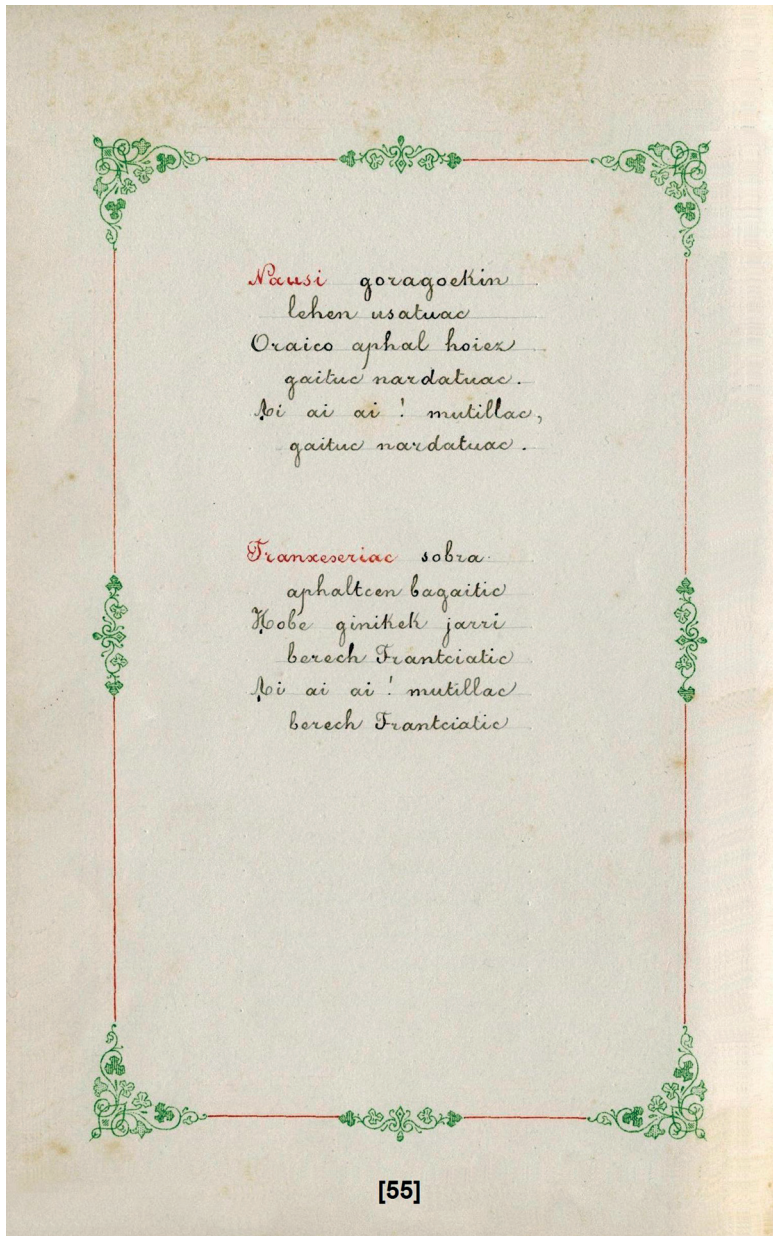 Nausi goragoekin
lehen usatuac
Oraico aphal hoiez
gaituc nardatuac.
Ai ai ai ! mutillac,
gaituc nardatuac.
Franxeseriac sobra
aphaltcen bagaitic
Hobe ginikek jarri
berech Frantciatic
Ai ai ai ! mutillac
berech Frantciatic
[55]